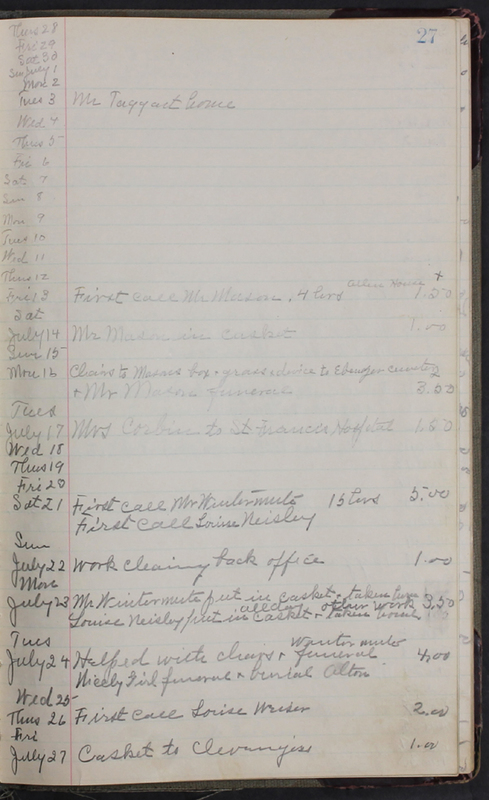 27
Thurs 28
Fri 29
Sat 30
Sun July 1
Mon 2
Tues 3 Mr Taggart home
Wed 4
Thus 5
Fri 6
Sat 7
Sun 8
Mon 9
Tues 10
Wed 11
Thus 12
Fri 13 First call Mr Mason . 4 hrs 1.50
Sat
July 14 Mr Mason in casket 1.00
Sun 15
Mon 16 Chairs to Masons box + grass device to Ebenezer
+ Mr Mason funeral 3.50
Tues
July 17 Mrs Corbin to St. Francis Hospital 1.50
Wed 18
Thus 19
Fri 20
Sat 21 First call Mr Wintermute 15 hrs 5.00
First call Louise Neisley
Sun
July 22 Work cleaning back office 1.00
Mon
July 23 Mr Wintermute put in casket + taken home
all day other work 3.50
Louise Neisley put in casket + taken home
Tues
Wintermute
July 24 Helped with chairs + funeral 4.00
Nicely Girl funeral + burial Alton
Wed 25
Thus 26 First call Louise Weiser 2.00
Fri
July 27 Casket to 1.00